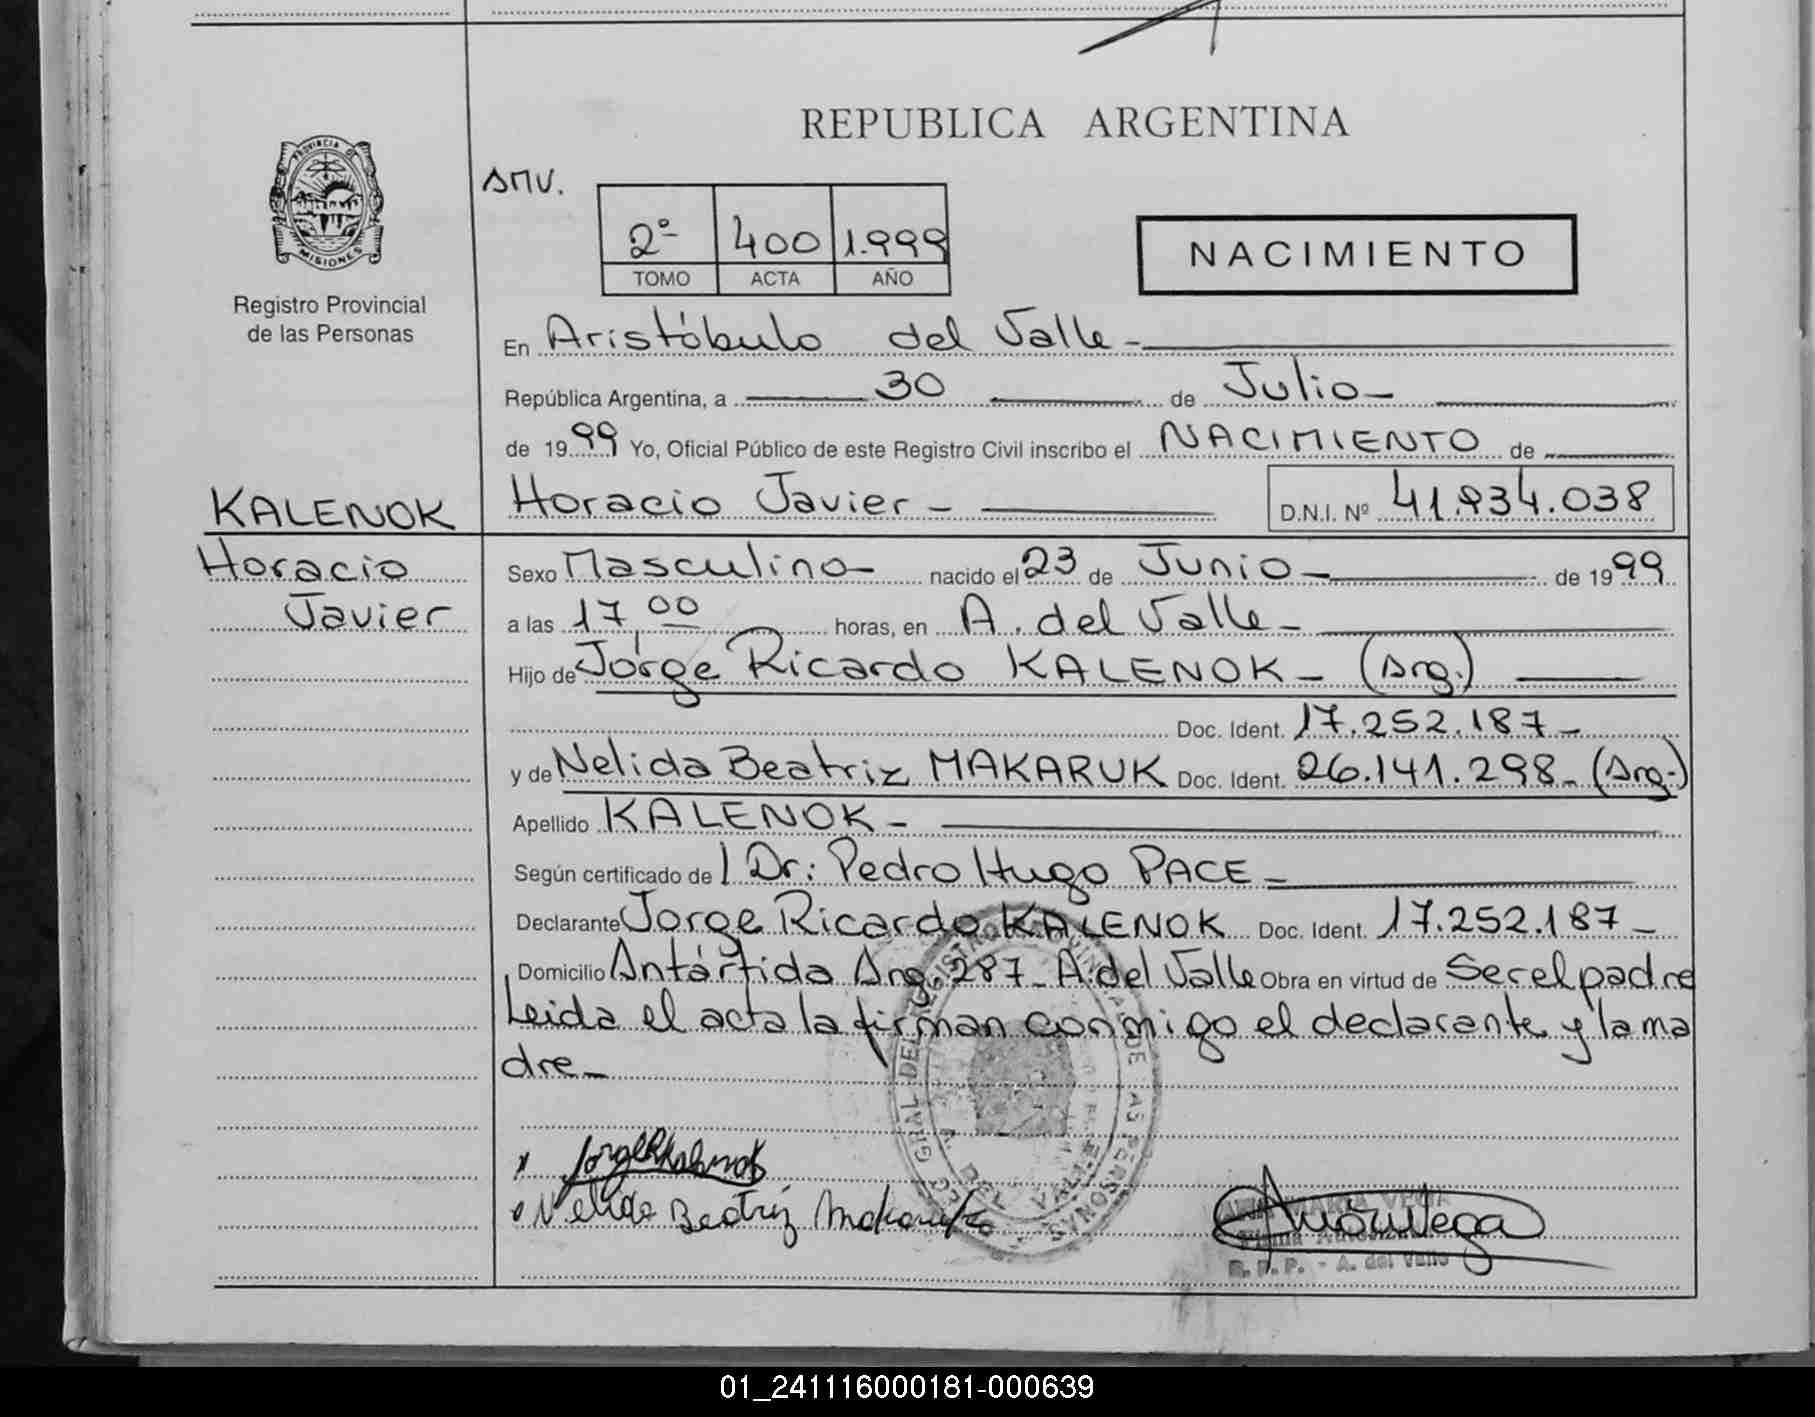 REPUBLICA ARGENTINA
PROVINCIA DE MISIONES
Registro Provincial
de las Personas
AMV.
2º 400 1.999
TOMO ACTA AÑO
NACIMIENTO
En Aristóbulo del Valle -
República Argentina, a 30 de Julio -
de 1999 Yo, Oficial Público de este Registro Civil inscribo el NACIMIENTO de
KALENOK
Horacio
Javier
Horacio Javier - D.N.I. Nº 41.934.038
Sexo Masculino - nacido el 23 de Junio - de 1999
a las 17,00 horas, en A. del Valle -
Hijo de Jorge Ricardo KALENOK - (Arg.)
Doc. Ident. 17.252.187 -
y de Nelida Beatriz MAKARUK Doc. Ident. 26.141.298 - (Arg.)
Apellido KALENOK -
Según certificado de / Dr: Pedro Hugo PACE -
Declarante Jorge Ricardo KALENOK Doc. Ident. 17.252.187 -
Domicilio Antártida Arg. 287 - A. del Valle Obra en virtud de Ser el padre
Leida el acta la firman conmigo el declarante y la ma
dre -
Jorge R Kalenok
Nelida Beatriz Makaruk
ANA MARIA VEGA
Firma Autorizada
R. P. P. - A. del Valle
01_241116000181-000639